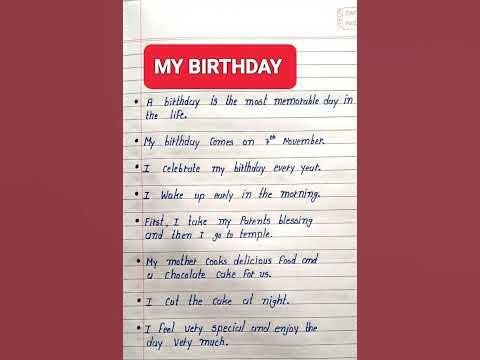 MY BIRTHDAY
• A birthday is the most memorable day in
the life.
• My birthday comes on 7th November.
• I celebrate my birthday every year.
• I Wake up early in the morning.
• First, I take my Parents blessing
and then I go to temple.
• My mother cooks delicious food and
a chocolate cake for us.
• I cut the cake at night.
• I feel very special and enjoy the
day very much.